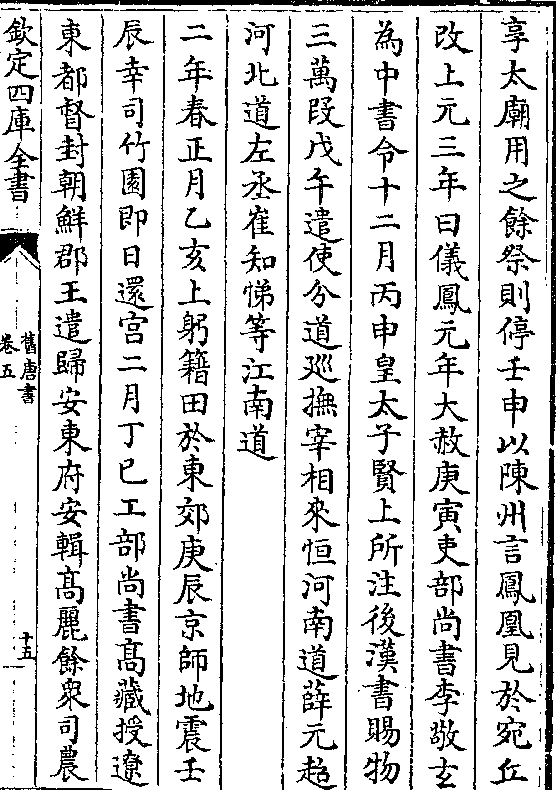 享太廟用之餘祭則停壬申以陳州言鳳凰見於宛丘
改上元三年曰儀鳳元年大赦庚寅吏部尚書李敬玄
為中書令十二月丙申皇太子賢上所注後漢書賜物
三萬段戊午遣使分道廵撫宰相來恒河南道薛元超
河北道左丞崔知悌等江南道
二年春正月乙亥上躬籍田於東郊庚辰京師地震壬
辰幸司竹園即日還宫二月丁巳工部尚書髙藏授遼
東都督封朝鮮郡王遣歸安東府安輯髙麗餘衆司農
欽定四庫全書
舊唐書
卷五
十五